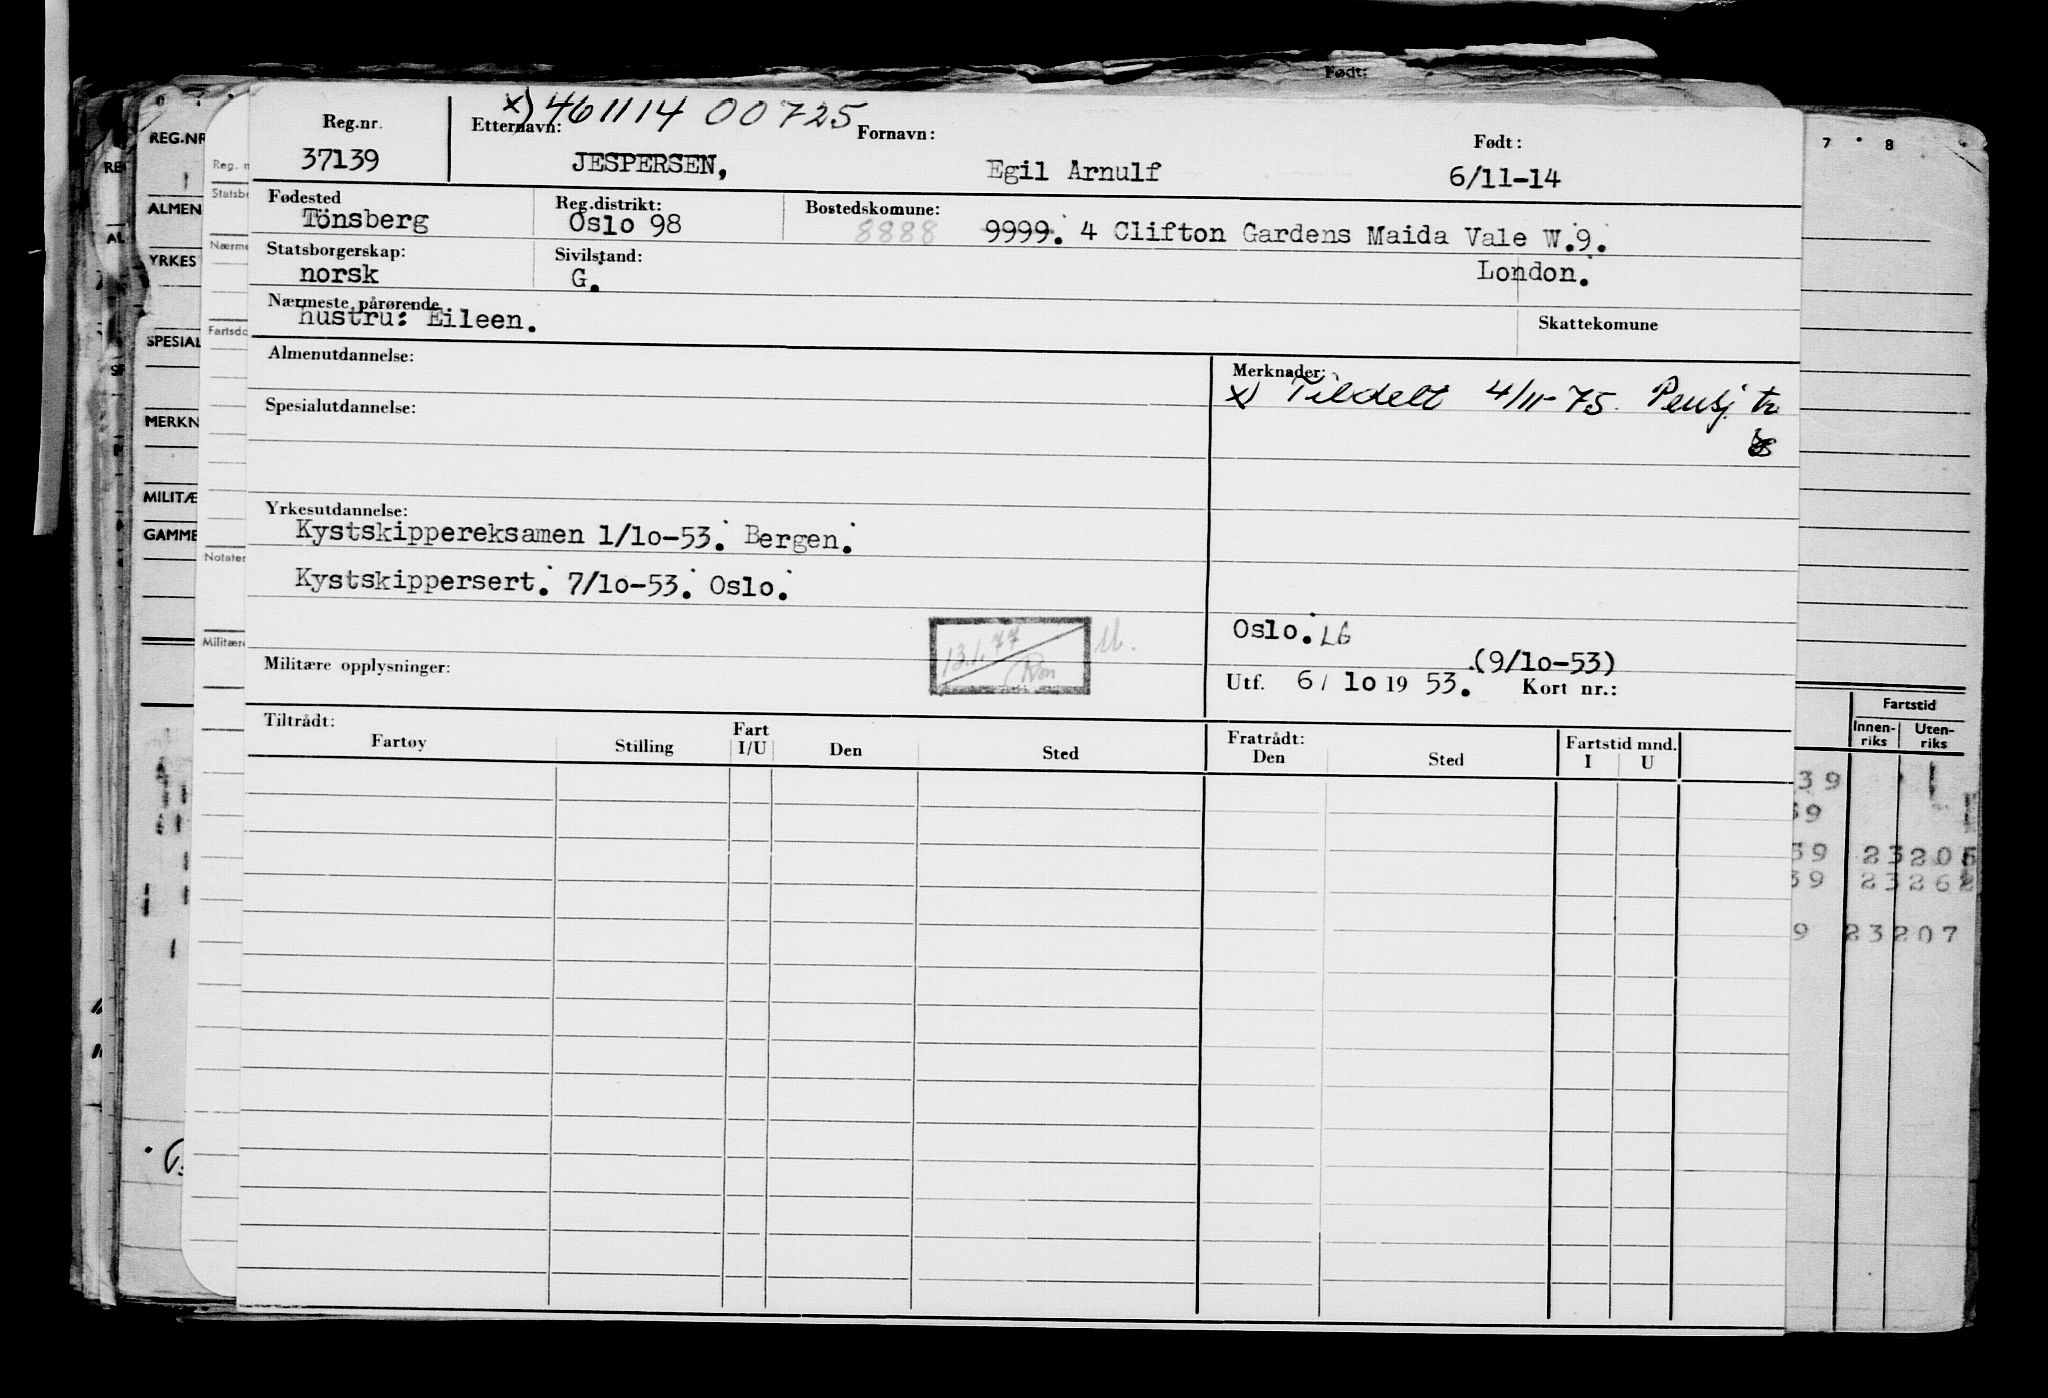 Født:
x) 461114 00725
Reg.nr. Etternavn: Fornavn: Født:
37139 JESPERSEN, Egil Arnulf 6/11-14
Fødested Reg.distrikt: Bostedskomune:
Tönsberg Oslo 98 8888 9999. 4 Clifton Gardens Maida Vale W.9.
Statsborgerskap: Sivilstand:
norsk G. London.
Nærmeste pårørende
hustru: Eileen. Skattekomune
Almenutdannelse: Merknader:
x) Tildelt 4/11-75. Pensj. tr.
Spesialutdannelse:
Yrkesutdannelse:
Kystskippereksamen 1/10-53. Bergen.
Kystskippersert. 7/10-53. Oslo.
13.1.77
Oslo. LG
Militære opplysninger: (9/10-53)
Utf. 6/10 19 53. Kort nr.:
Tiltrådt: Fratrådt:
Fartøy Stilling Fart I/U Den Sted Den Sted Fartstid mnd. I U
REG.NR
Reg. n
Statsbe
ALMEN
Nærme
YRKES
Fartsdo
SPESIAL
MERKN
MILITÆ
GAMME
Notater
Militære
7 8
Fartstid
Innen-riks Uten-riks
39
39
39 23205
39 23262
9 23207